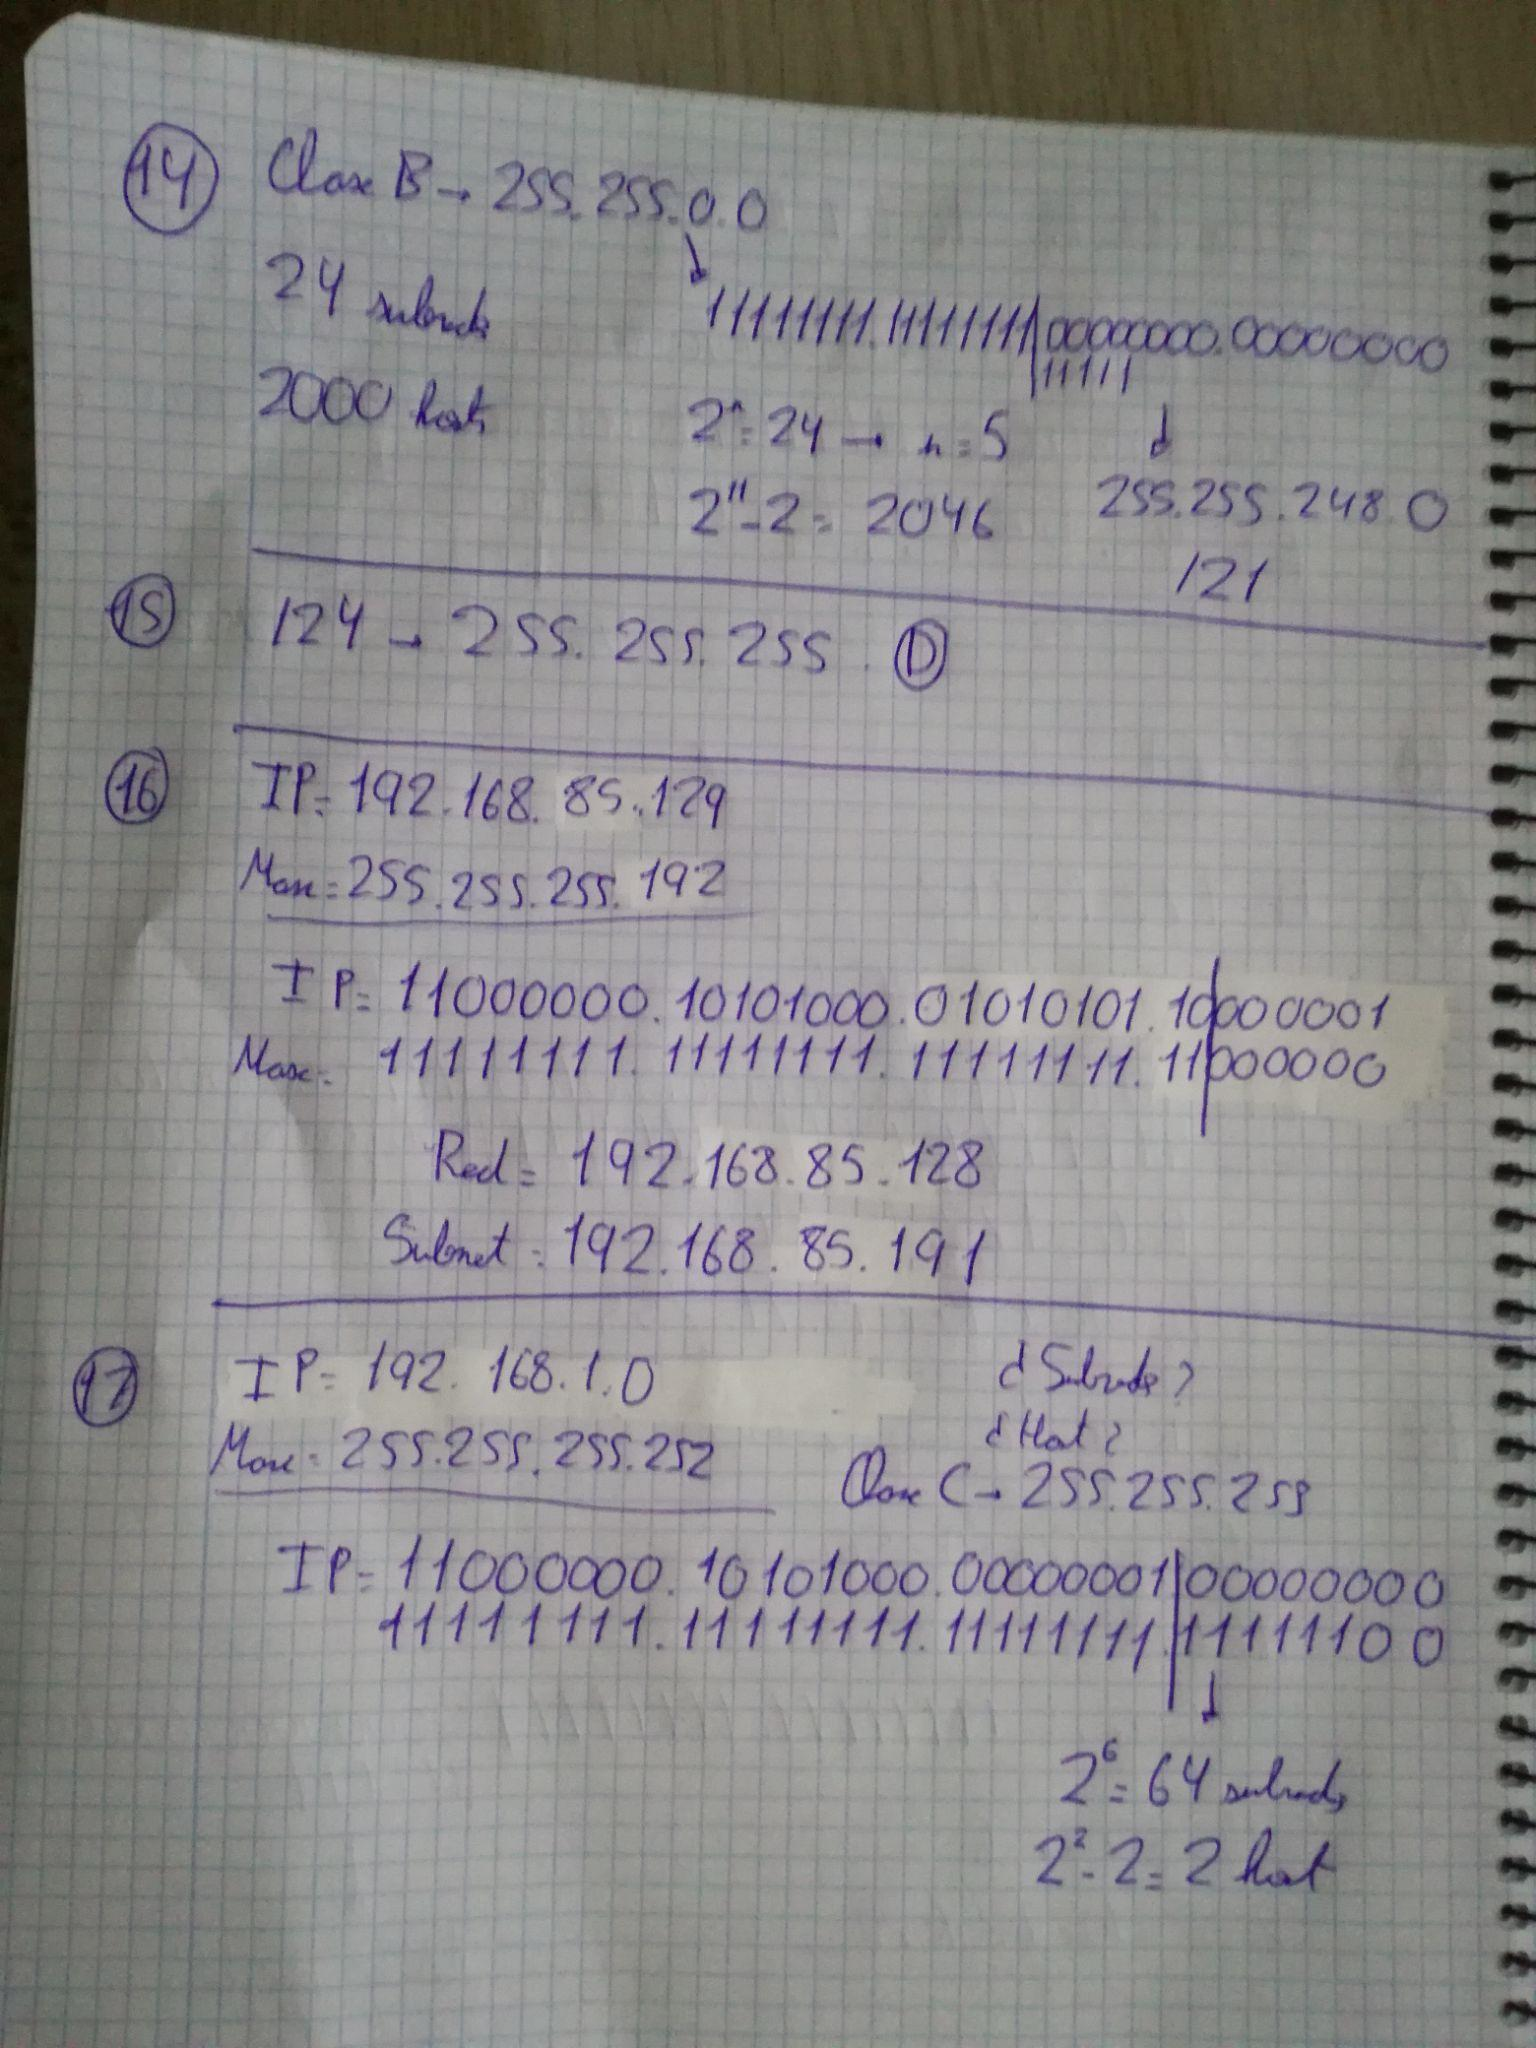 14 Clase B → 255.255.0.0
24 subredes
11111111.11111111|00000000.00000000
11111
2000 host
2^n = 24 → n = 5
2^11 - 2 = 2046
255.255.248.0
/21
15 /24 → 255.255.255. D
16 IP = 192.168.85.129
Masc = 255.255.255.192
IP = 11000000.10101000.01010101.10|000001
Masc = 11111111.11111111.11111111.11|000000
Red = 192.168.85.128
Subnet = 192.168.85.191
17 IP = 192.168.1.0
¿Subredes?
¿Host?
Masc = 255.255.255.252
Clase C → 255.255.255
IP = 11000000.10101000.00000001|00000000
11111111.11111111.11111111.|11111100
2^6 = 64 subredes
2^2 - 2 = 2 host